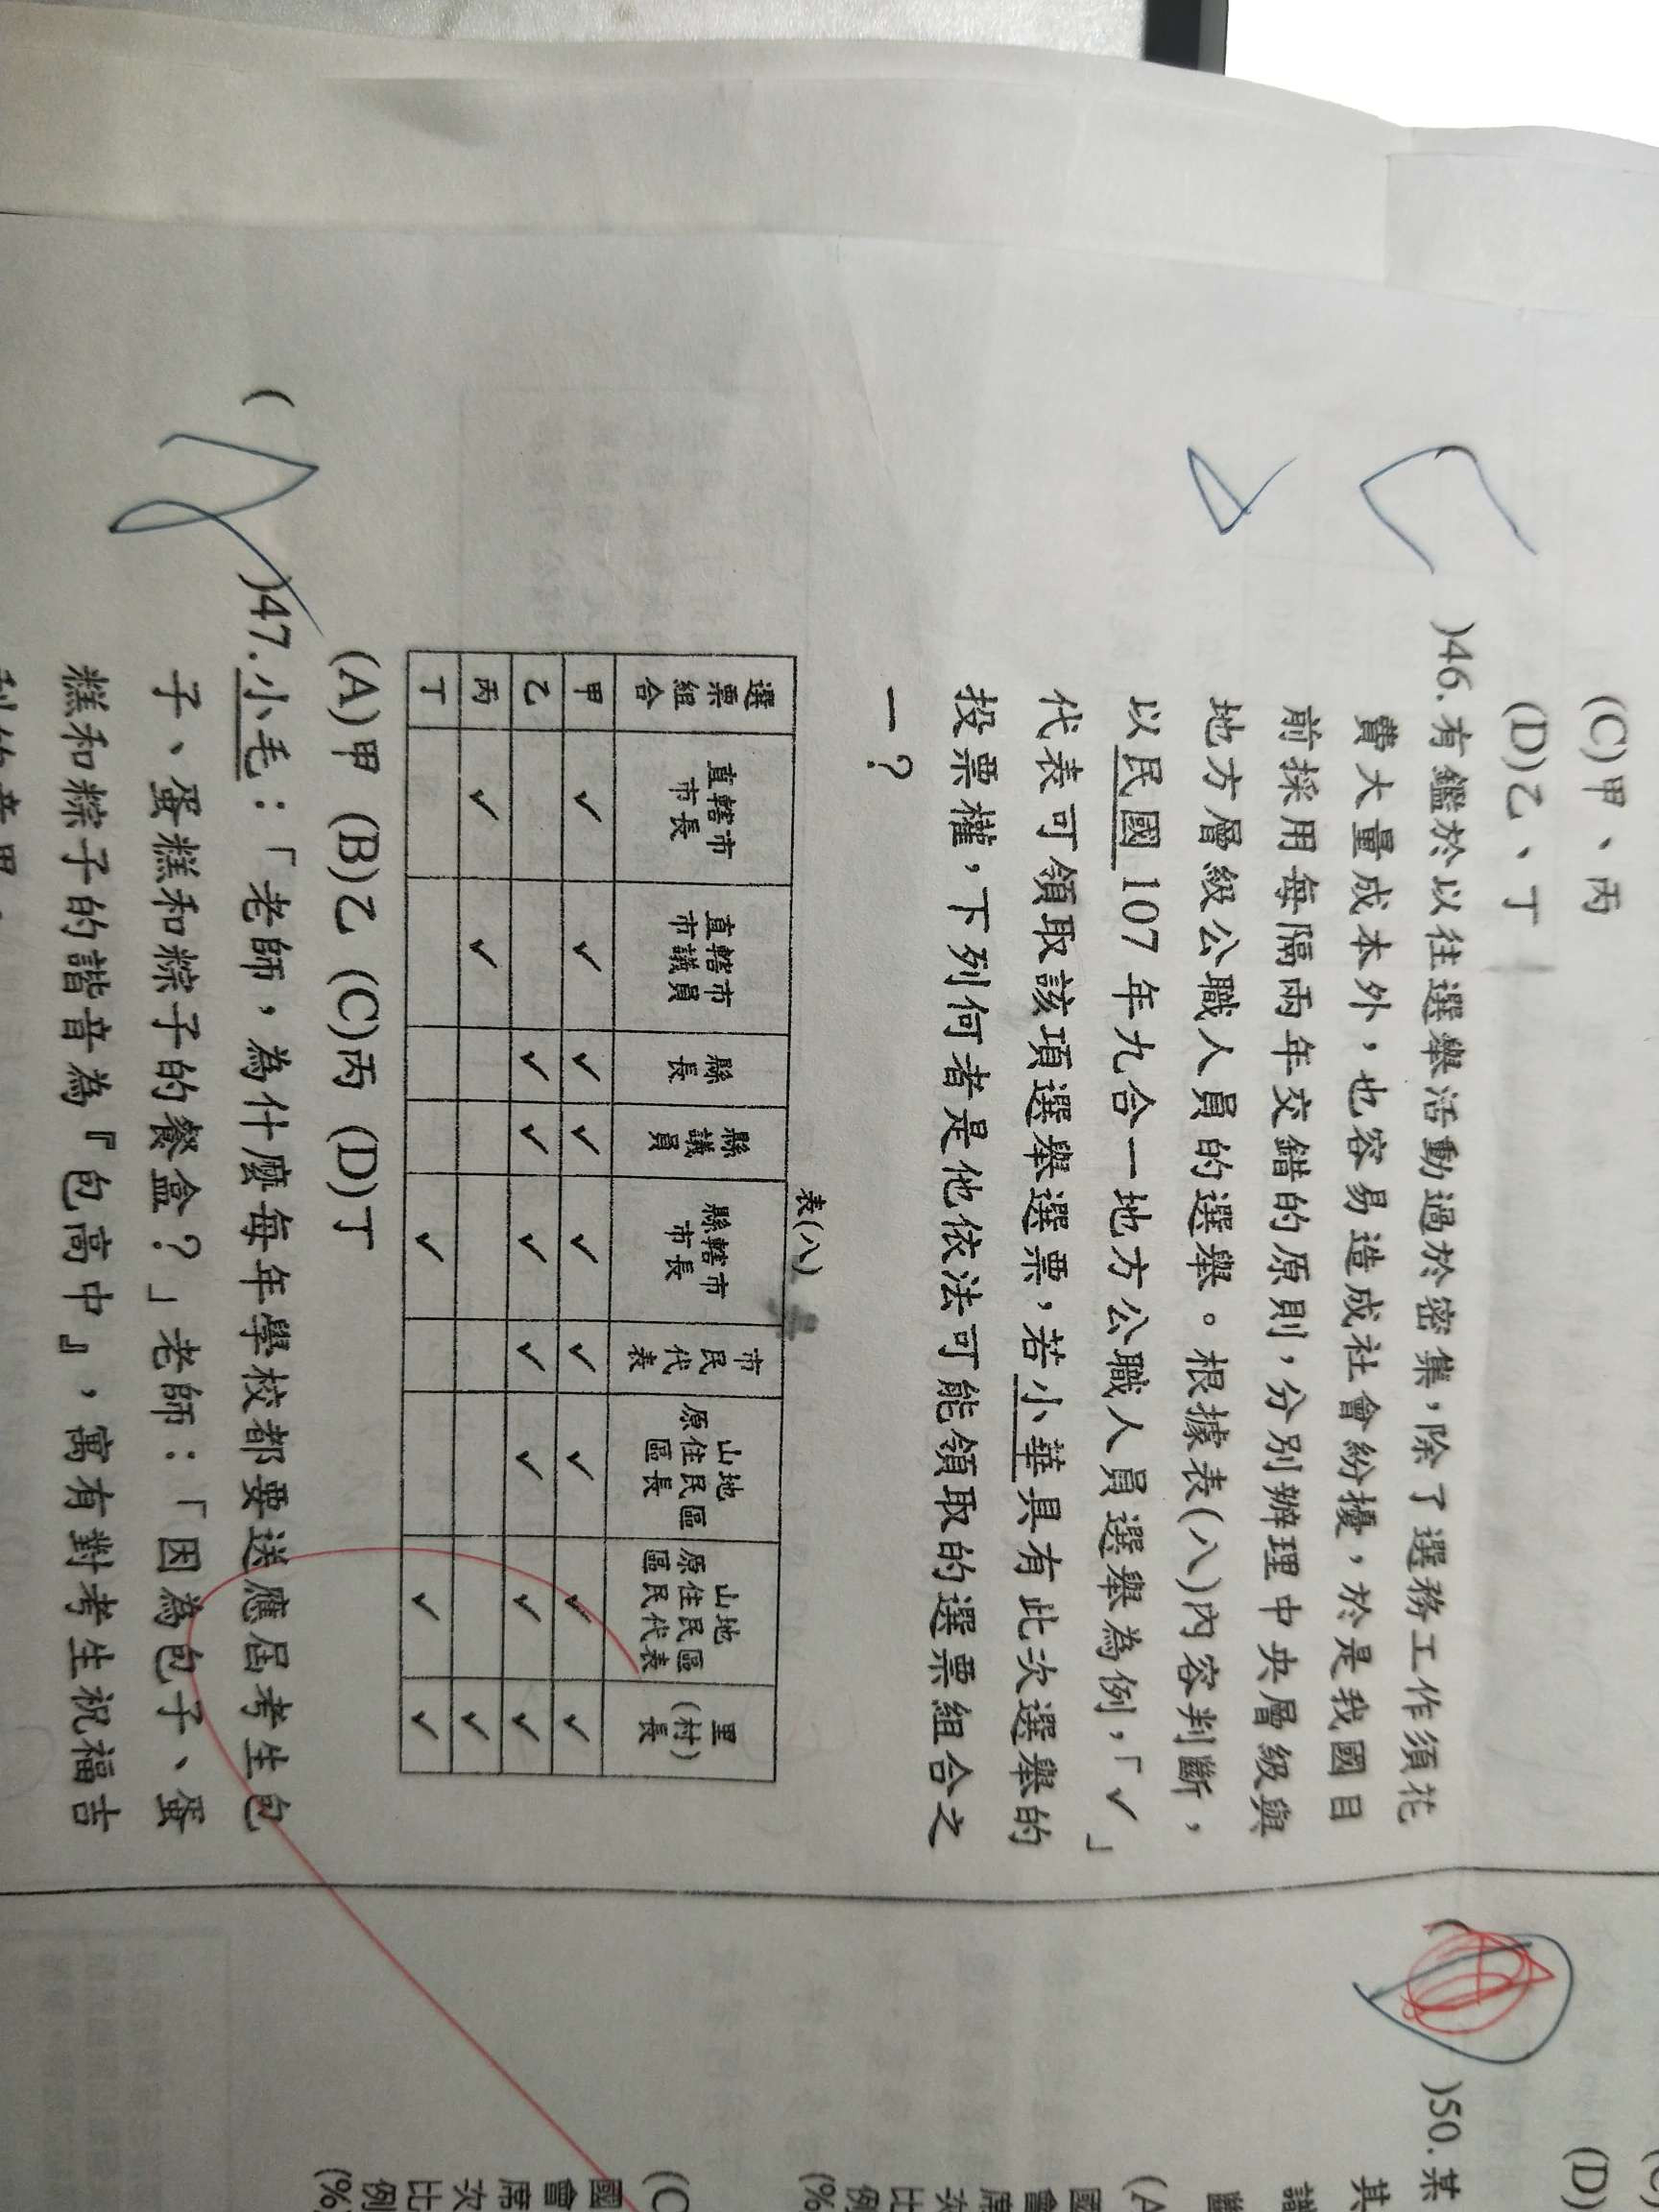 (C)甲、丙
(D)乙、丁
)46.有鑑於以往選舉活動過於密集,除了選務工作須花
費大量成本外,也容易造成社會紛擾,於是我國目
前採用每隔兩年交錯的原則,分別辦理中央層級與
地方層級公職人員的選舉。根據表(八)內容判斷,
以民國107年九合一地方公職人員選舉為例,「✓」
代表可領取該項選舉選票,若小華具有此次選舉的
投票權,下列何者是他依法可能領取的選票組合之
一?
表(八)
選票組合 直轄市市長 直轄市市議員 縣長 縣議員 縣轄市市長 市民代表 山地原住民區區長 山地原住民區區民代表 里(村)長
甲 ✓ ✓ ✓ ✓ ✓ ✓ ✓ ✓ ✓
乙 ✓ ✓ ✓ ✓ ✓ ✓ ✓
丙 ✓ ✓ ✓
丁 ✓ ✓ ✓
(A)甲 (B)乙 (C)丙 (D)丁
( )47.小毛:「老師,為什麼每年學校都要送應屆考生包
子、蛋糕和粽子的餐盒?」老師:「因為包子、蛋
糕和粽子的諧音為『包高中』,寓有對考生祝福吉
(D)
( )50.某
其
(A)
國會席次比例(%
(C
國會席次比例(%